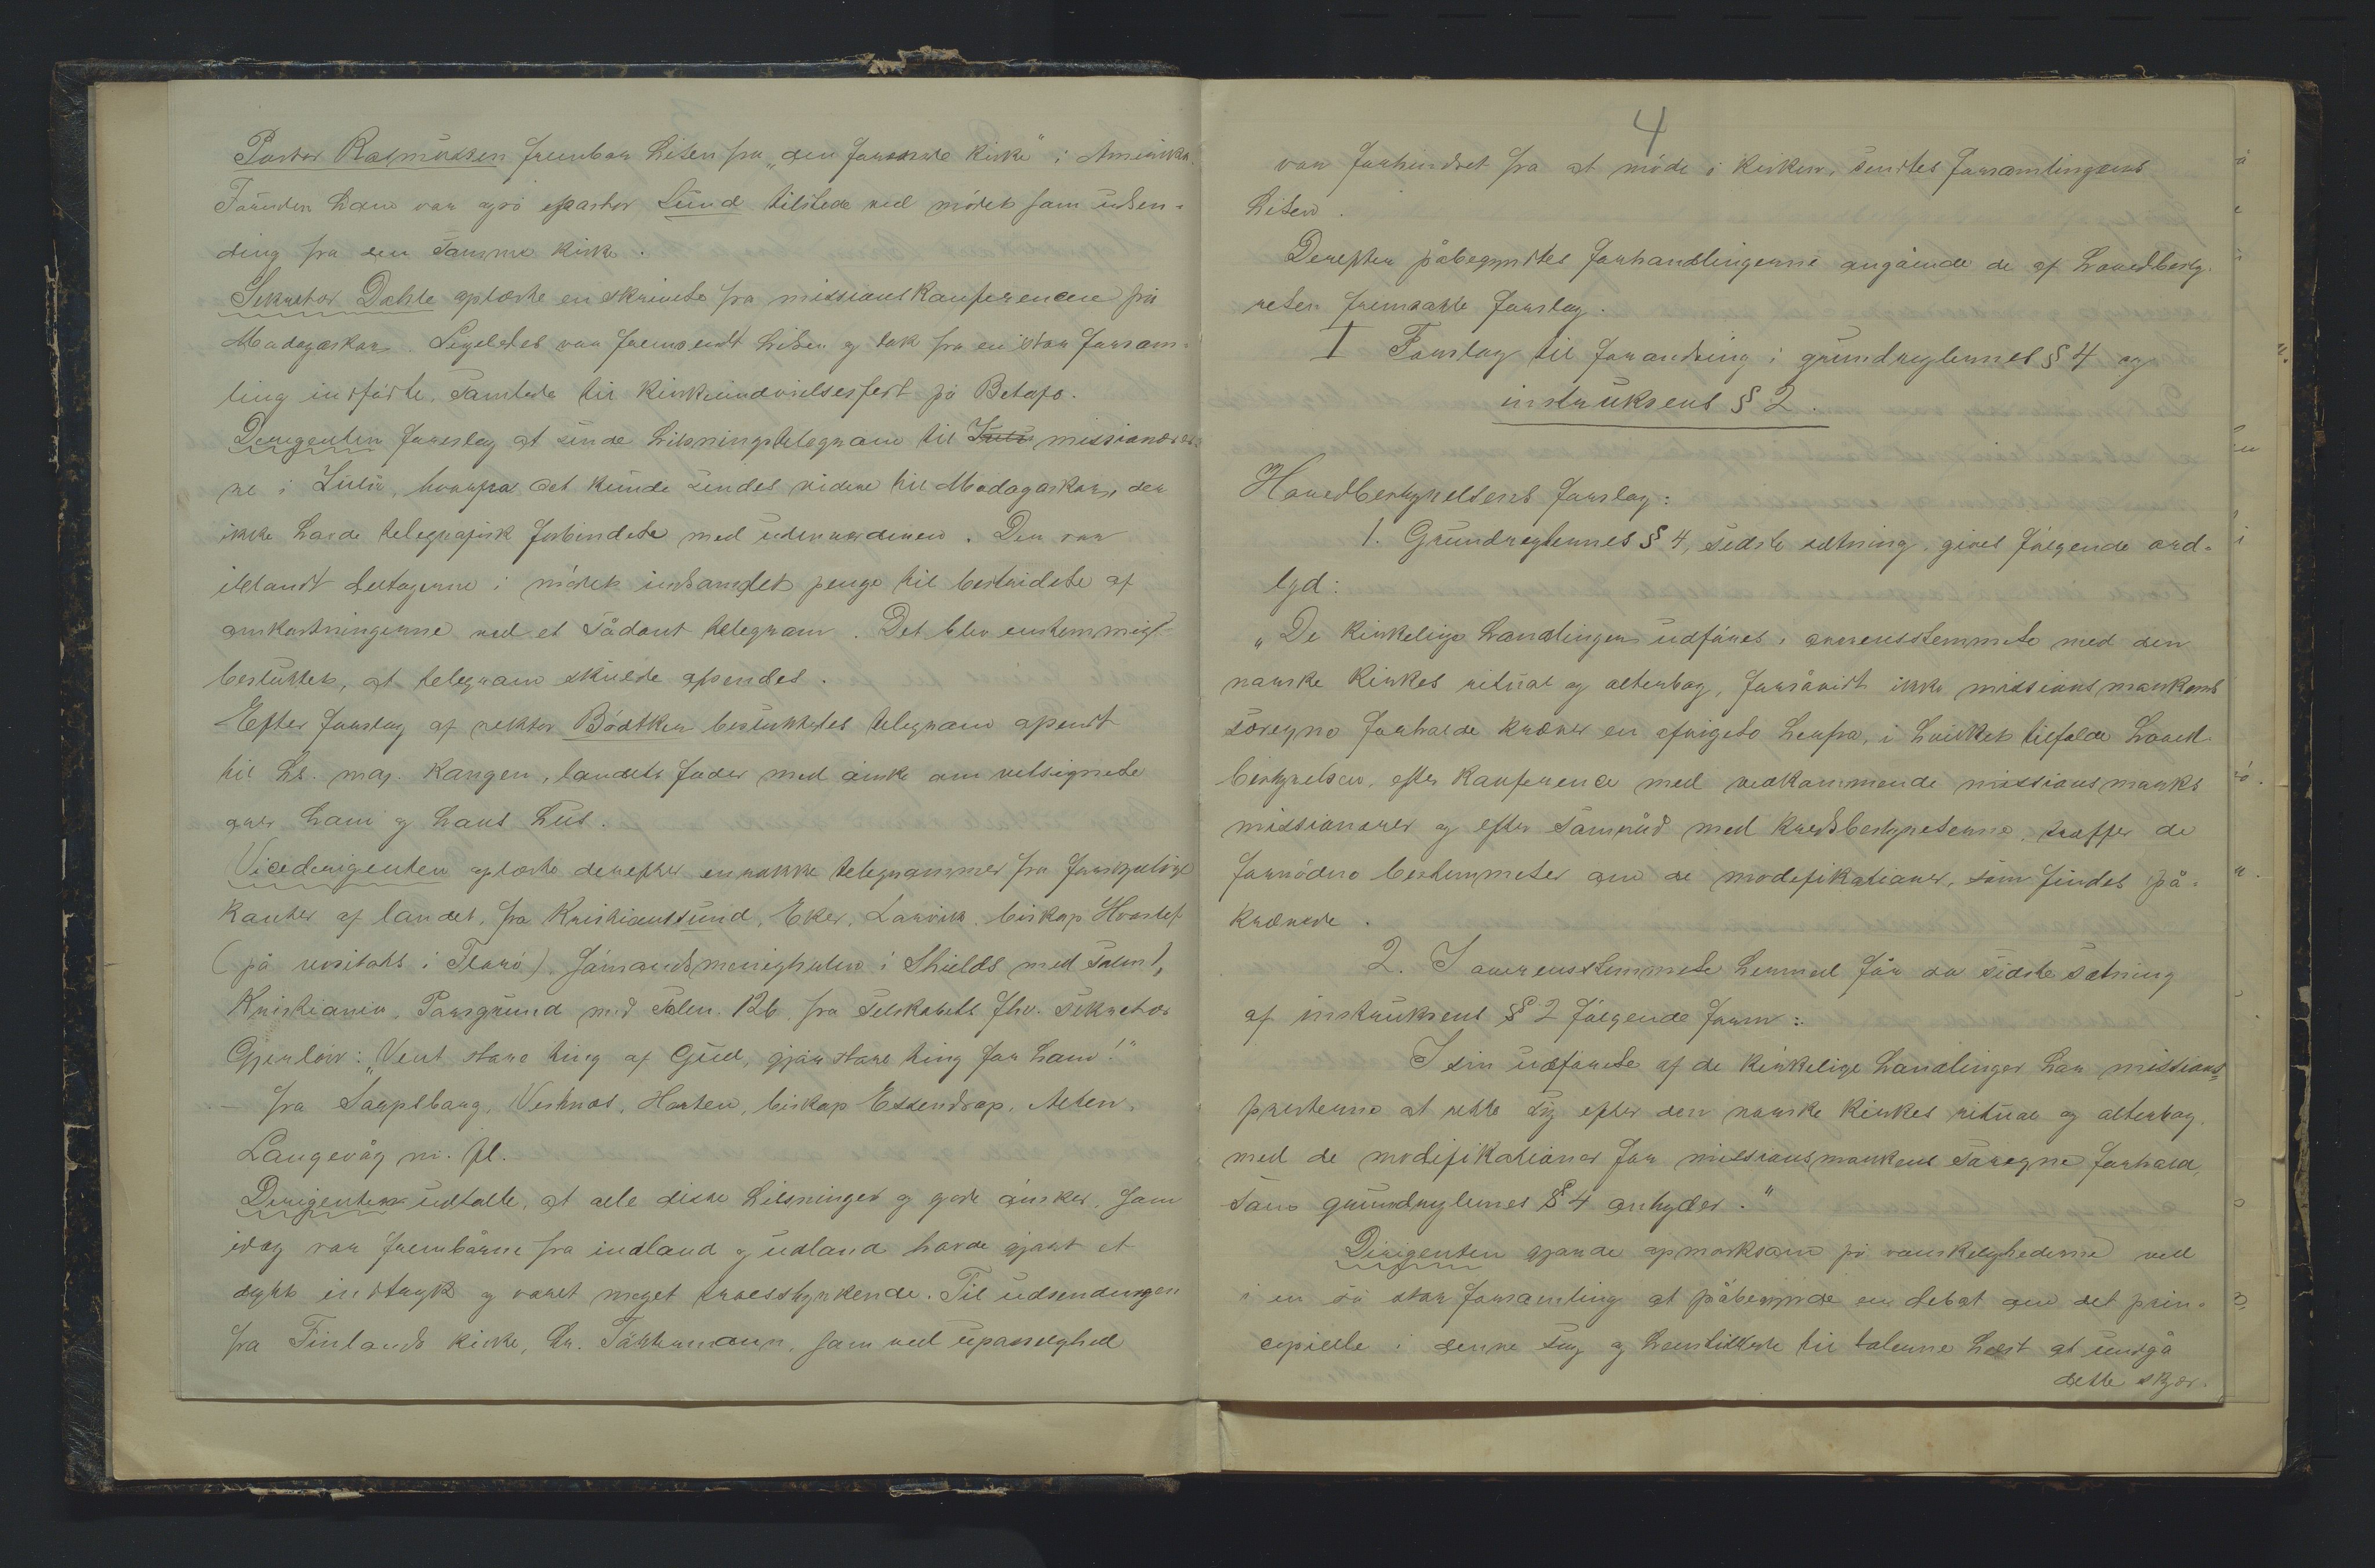 Pastor Rasmussen frembar hilsen fra „den forenede kirke" i Amerika.
Foruden ham var også pastor Lund tilstede ved mödet som udsen-
ding fra den samme kirke.
Sekretær Dahle oplæste en skrivelse fra missionskonferencen på
Madagaskar. Ligeledes var fremsendt hilsen og tak fra en stor forsam-
ling indfödte, samlede til kirkeindvielsesfest på Betafo.
Dirigenten foreslog at sende hilsningstelegram til Zulu missionærer-
ne i Zulu, hvorfra det kunde sendes videre til Madagaskar, der
ikke havde telegrafisk forbindelse med udenverdenen. Der var
iblandt deltagerne i mödet indsamlet penge til bestridelse af
omkostningerne ved et sådant telegram. Det blev enstemmigt
besluttet, at telegram skulde afsendes.
Efter forslag af rektor Bödtker besluttedes telegram afsendt
til hs. maj. kongen, landets fader med önske om velsignelse
over ham og hans hus.
Vicedirigenten oplæste derefter en række telegrammer fra forskjellige
kanter af landet, fra Kristianssund, Eker, Larvik, biskop Hvoslef
(på visitats i Tromsö), sömandsmenigheden i Shields med salme,
Kristiania, Porsgrund med salm. 126, fra selskabets fhv. sekretær
Gjerlöw: „Vent store ting af Gud, gjör store ting for ham!"
– fra Sarpsborg, Vestnæs, Horten, biskop Essendrop, Alten,
Langevåg m. fl.
Dirigenten udtalte, at alle disse hilsninger og gode önsker, som
idag var frembårne fra indland og udland havde gjort et
dybt indtryk og været meget troesstyrkende. Til udsendingen
fra Finlands kirke, hr. Täkkemann, som ved upasselighed
4
var forhindret fra at möde i kirken, sendtes forsamlingens
hilsen.
Derefter påbegyndtes forhandlingerne angående de af hovedbesty-
relsen fremsatte forslag.
I Forslag til forandring i grundreglernes § 4 og
instruksens § 2.
Hovedbestyrelsens forslag:
1. Grundreglernes § 4, sidste sætning, gives fölgende ord-
lyd:
„De kirkelige handlinger udföres i overensstemmelse med den
norske kirkes ritual og alterbog, forsåvidt ikke missionsmarkens
særegne forholde kræver en afvigelse herfra, i hvilket tilfælde hoved-
bestyrelsen, efter konference med vedkommende missionsmarks
missionærer og efter samråd med kredsbestyrelserne, træffer de
fornödne bestemmelser om de modifikationer, som findes på-
krævede.
2. I overensstemmelse hermed får da sidste sætning
af instruksens § 2 fölgende form:
I sin udförelse af de kirkelige handlinger har missions-
presterne at rette sig efter den norske kirkes ritual og alterbog,
med de modifikationer for missionsmarkens særegne forhold,
som grundreglernes § 4 antyder."
Dirigenten gjorde opmærksom på vanskelighederne ved
i en så stor forsamling at påbegynde en debat om det prin-
cipielle i denne sag og henstillede til talerne helst at undgå
dette skjær.